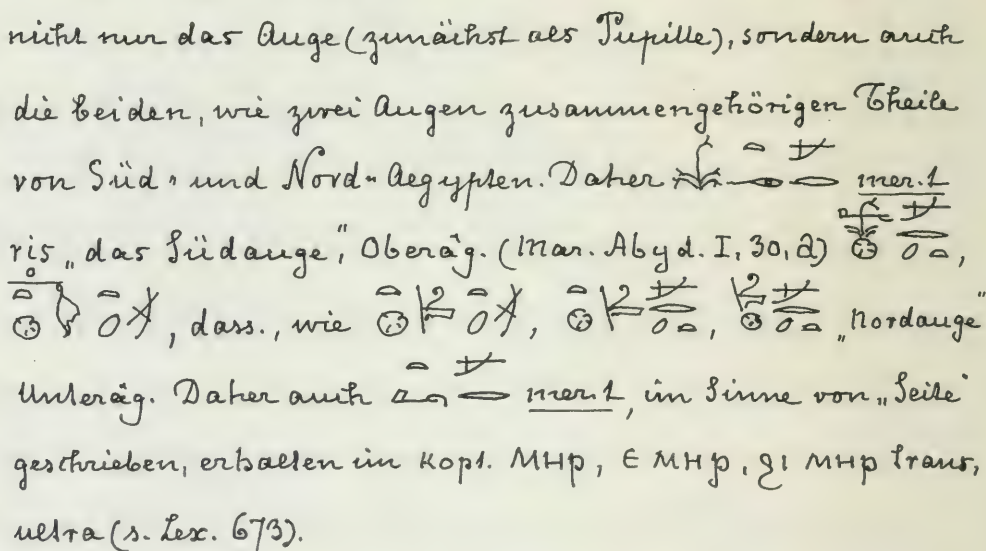 nicht nur das Auge (zunächst als Pupille), sondern auch
die beiden, wie zwei Augen zusammengehörigen Theile
von Süd- und Nord-Aegypten. Daher mer.t
ris „das Südauge", Oberäg. (Mar. Abyd. I, 30, a) ,
, dass., wie , , „Nordauge"
Unteräg. Daher auch mer.t, im Sinne von „Seite"
geschrieben, erhalten im Kopt. ⲙⲏⲣ, ⲉ ⲙⲏⲣ, ϩⲓ ⲙⲏⲣ trans,
ultra (s. Lex. 673).